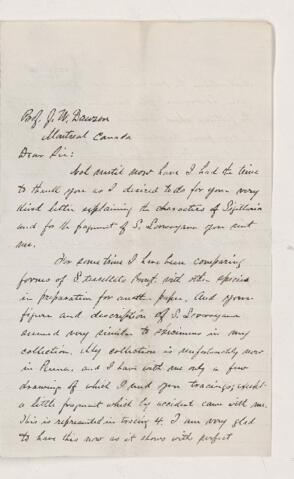 Prof. J. W. Dawson
Montreal Canada
Dear Sir:
Not until now have I had the time
to thank you as I desired to do for your very
kind letter explaining the characters of Sigillaria
and for the fragment of S. Lorwayana you sent
me.
For some time I have been comparing
forms of S. tessellata Brongt. with other species
in preparation for another paper. And your
figure and description of S. Lorwayana
seemed very similar to specimens in my
collection. My collection is unfortunately now
in and I have with me only a few
drawing of which I send you tracings, except
a little fragment which by accident came with me.
This is represented in tracing 4. I am very glad
to have this now as it shows with perfect